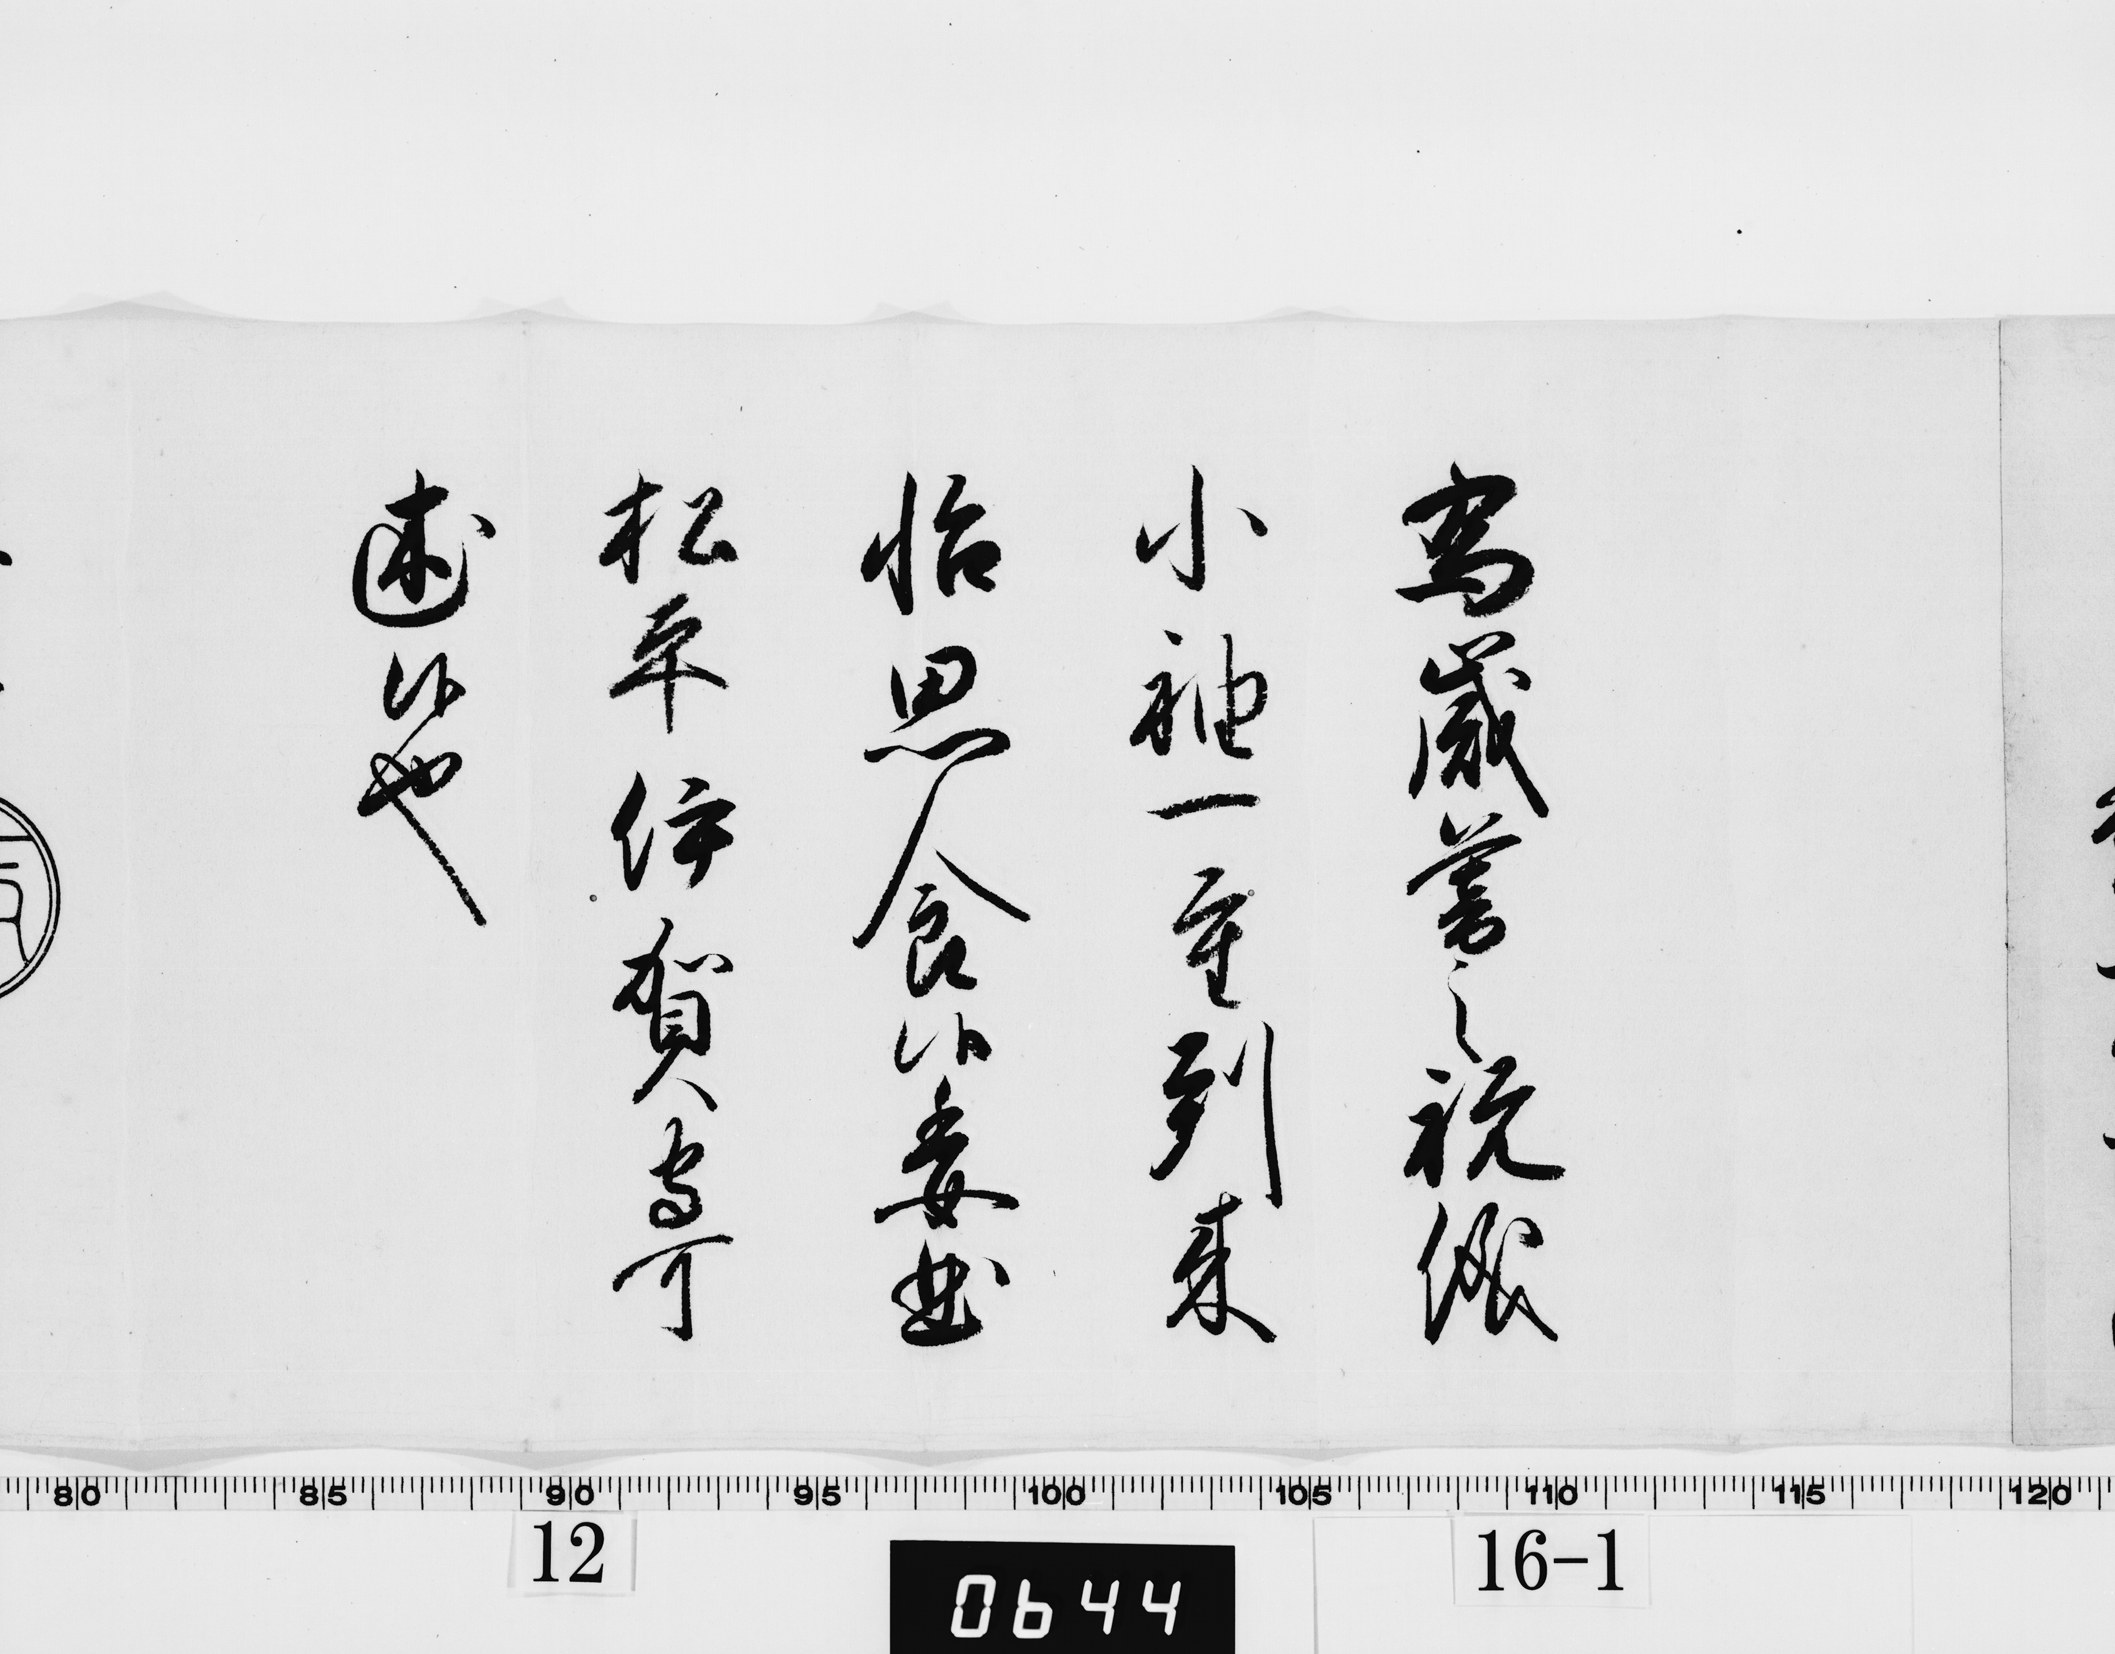 為歳暮之祝儀
小袖一重到来
怡思食候委曲
松平伊賀守可
述候也
80 85 90 95 100 105 110 115 120
12
0644
16-1